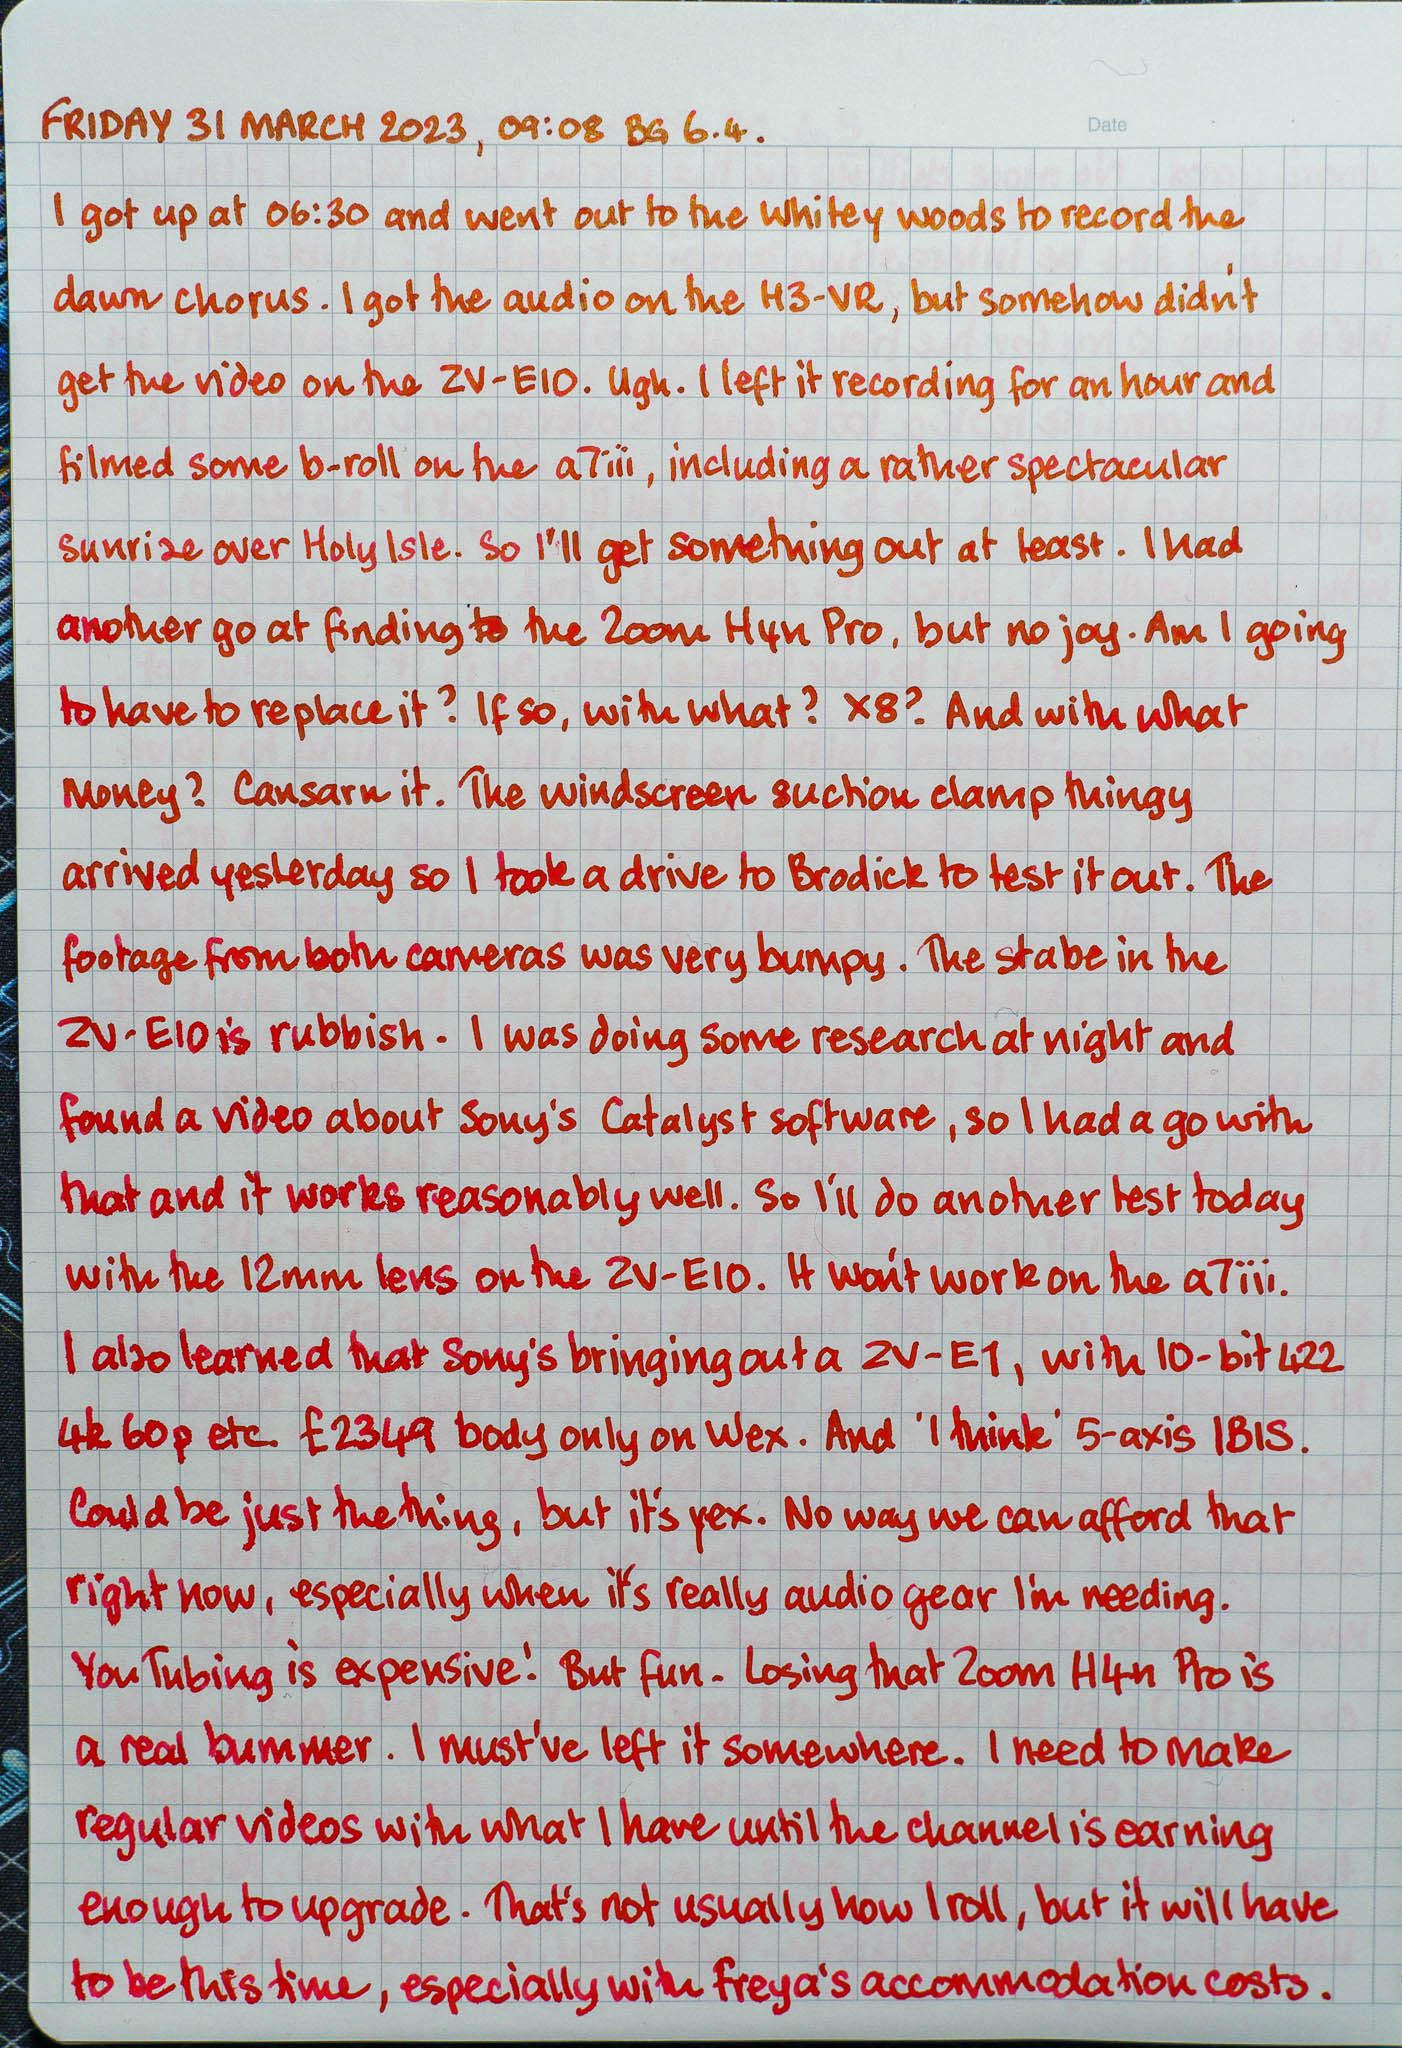 Date
FRIDAY 31 MARCH 2023, 09:08 BG 6.4.
I got up at 06:30 and went out to the Whitey woods to record the
dawn chorus. I got the audio on the H3-VR, but somehow didn't
get the video on the ZV-E10. Ugh. I left it recording for an hour and
filmed some b-roll on the a7iii, including a rather spectacular
sunrise over Holy Isle. So I'll get something out at least. I had
another go at finding to the Zoom H4n Pro, but no joy. Am I going
to have to replace it? If so, with what? X8? And with what
money? Cansarn it. The windscreen suction clamp thingy
arrived yesterday so I took a drive to Brodick to test it out. The
footage from both cameras was very bumpy. The stabe in the
ZV-E10 is rubbish. I was doing some research at night and
found a video about Sony's Catalyst software, so I had a go with
that and it works reasonably well. So I'll do another test today
with the 12mm lens on the ZV-E10. It won't work on the a7iii.
I also learned that Sony's bringing out a ZV-E1, with 10-bit 422
4k 60p etc. £2349 body only on Wex. And 'I think' 5-axis IBIS.
Could be just the thing, but it's pex. No way we can afford that
right now, especially when it's really audio gear I'm needing.
YouTubing is expensive! But fun. Losing that Zoom H4n Pro is
a real bummer. I must've left it somewhere. I need to make
regular videos with what I have until the channel is earning
enough to upgrade. That's not usually how I roll, but it will have
to be this time, especially with Freya's accommodation costs.